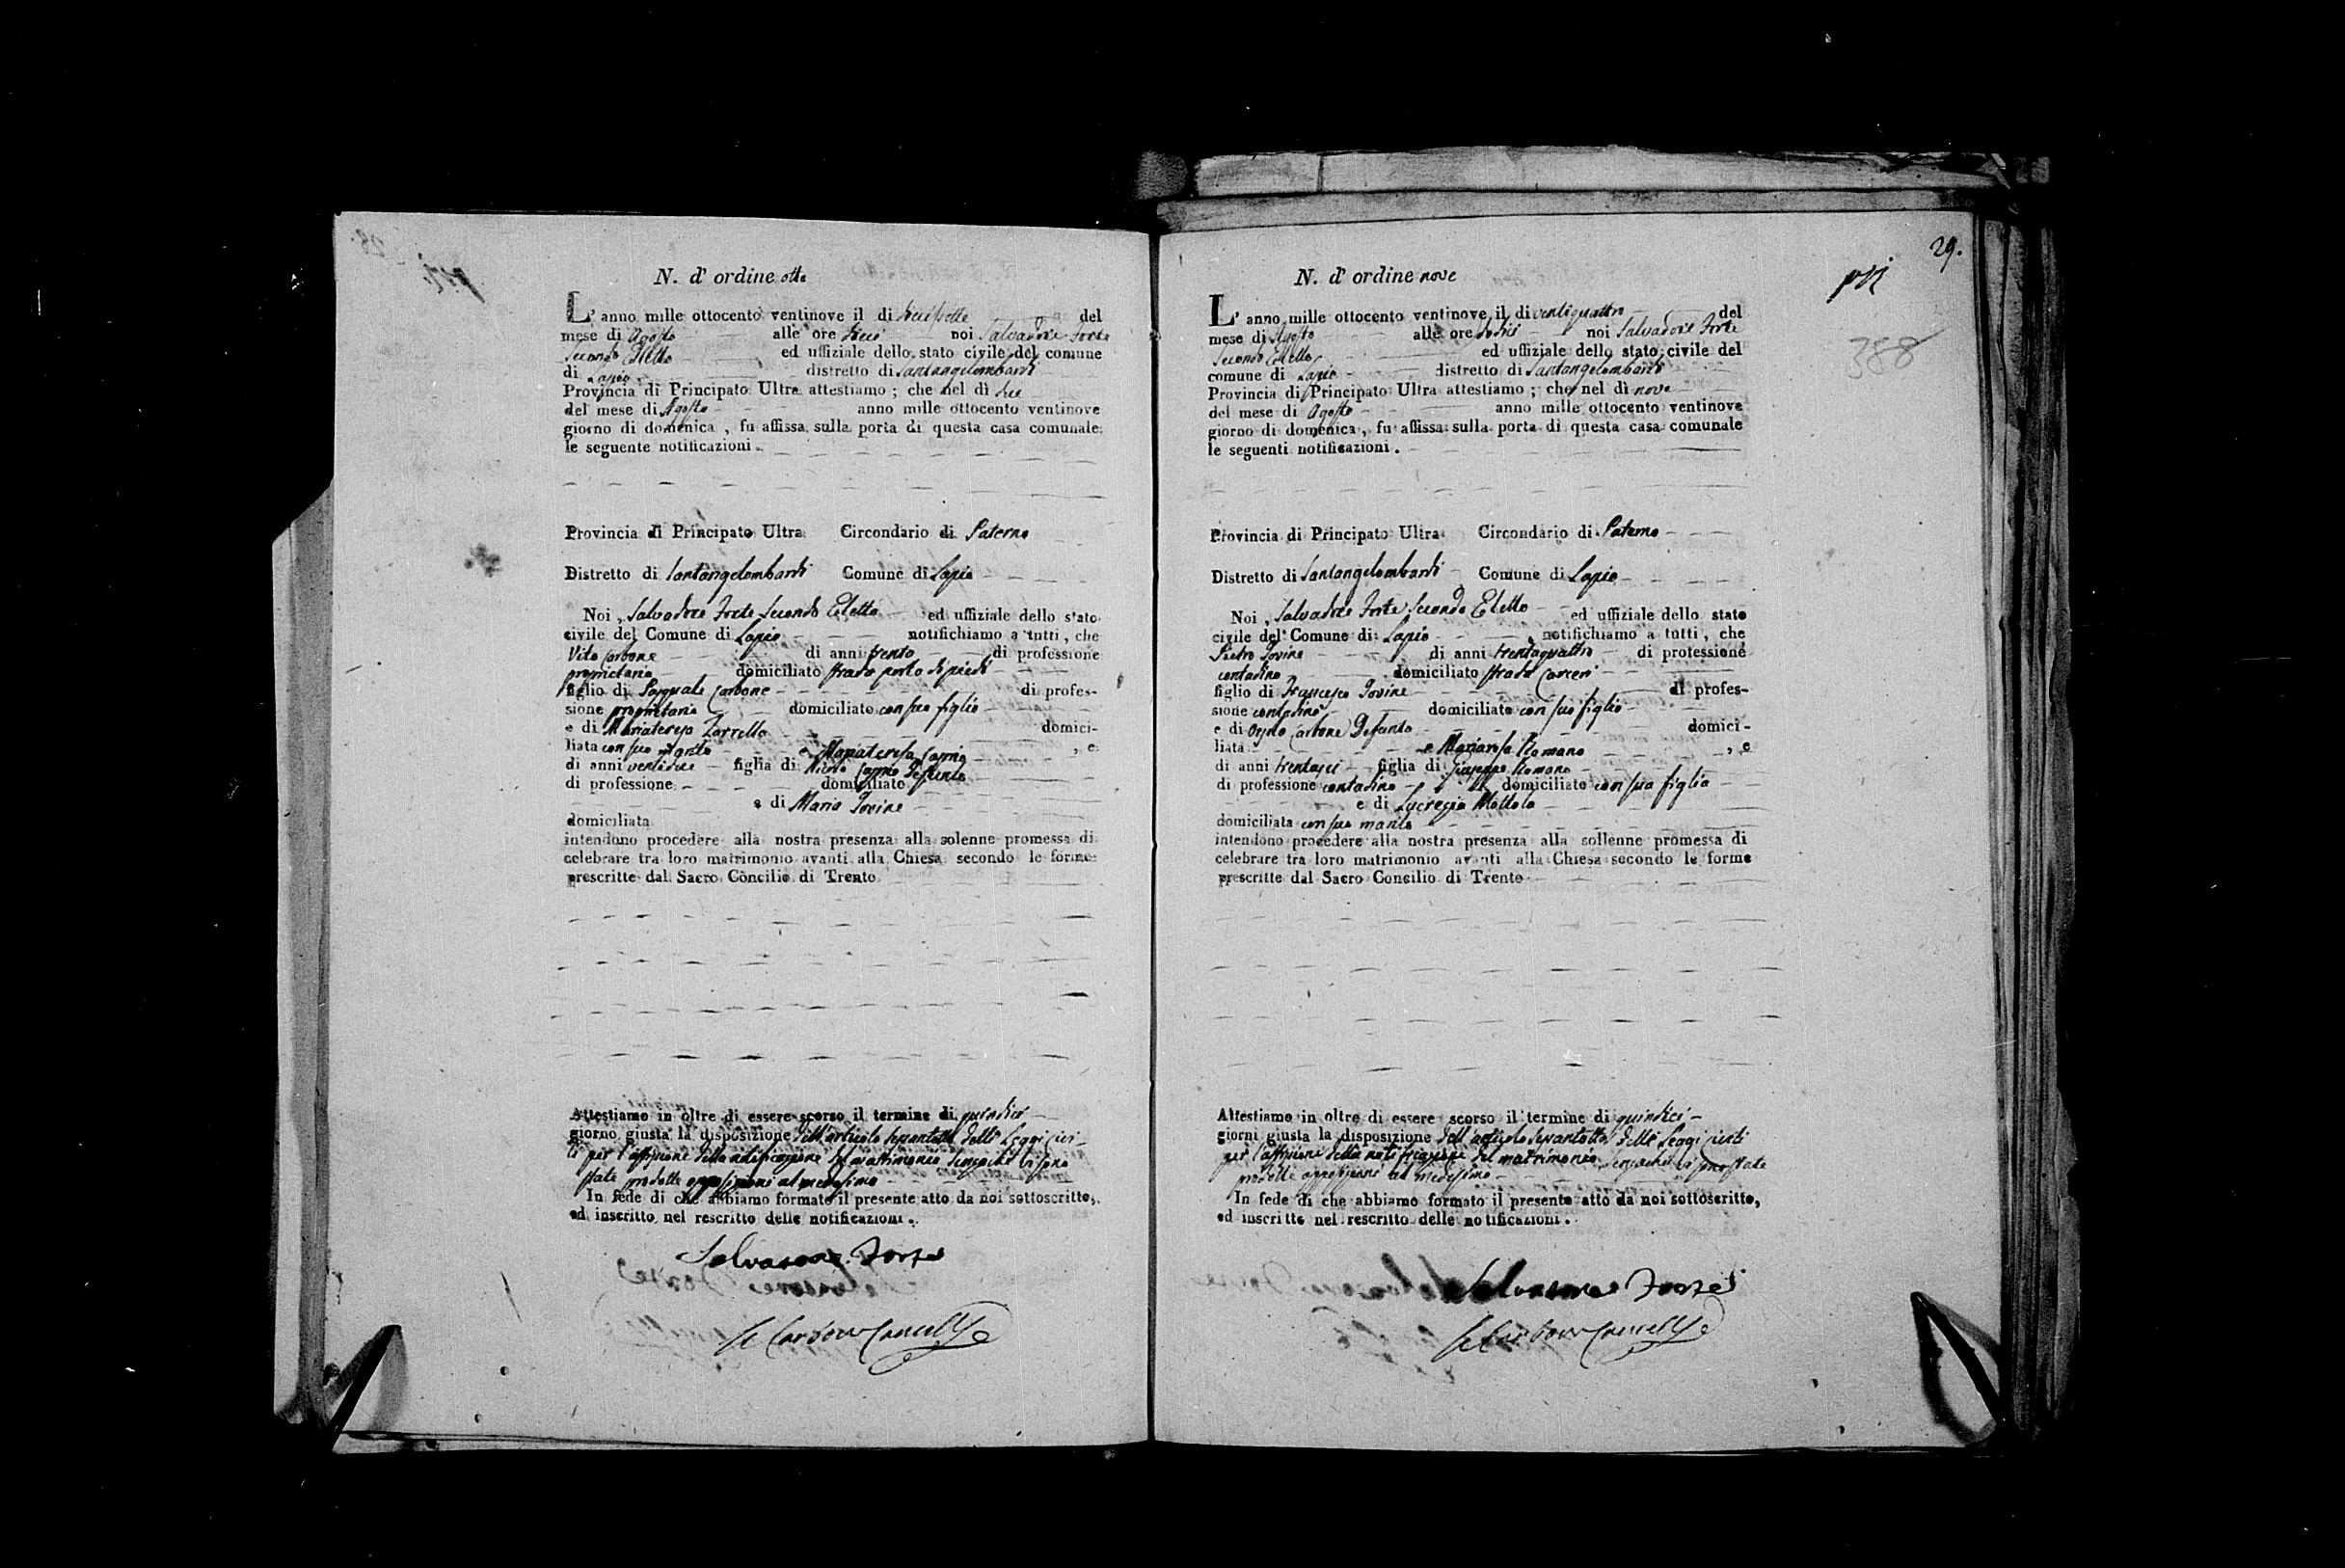 N. d' ordine otto
L' anno mille ottocento ventinove il di diecisette del
mese di Agosto alle ore dieci noi Salvadore Forte
Secondo Eletto ed uffiziale dello stato civile del comune
di Lapio distretto di Santangelombardi
Provincia di Principato Ultra attestiamo ; che nel dì due
del mese di Agosto anno mille ottocento ventinove
giorno di domenica , fu affissa sulla porta di questa casa comunale
le seguente notificazioni .
Provincia di Principato Ultra Circondario di Paterno
Distretto di Santangelombardi Comune di Lapio
Noi , Salvadore Forte Secondo Eletto ed uffiziale dello stato
civile del Comune di Lapio notifichiamo a tutti , che
Vito Carbone di anni trenta di professione
proprietario domiciliato strada porta di piedi
figlio di Pasquale Carbone di profes-
sione proprietario domiciliato con suo figlio
e di Mariateresa Zarrella domici-
liata con suo marito e Mariateresa Carpio , e
di anni ventidue figlia di Nicola Carpio Defunto
di professione domiciliato
e di Maria Iovine
domiciliata
intendono procedere alla nostra presenza alla solenne promessa di
celebrare tra loro matrimonio avanti alla Chiesa secondo le forme
prescritte dal Sacro Concilio di Trento
Attestiamo in oltre di essere scorso il termine di quindici
giorno giusta la disposizione dell'articolo sessantotto delle Leggi civi-
li per l'affissione della notificazione del matrimonio senzachè vi sono
state prodotte opposizioni al medesimo
In fede di che abbiamo formato il presente atto da noi sottoscritto,
ed inscritto nel rescritto delle notificazioni .
Salvadore Forte
Carbone Cancell.e
29.
N. d' ordine nove
388
L' anno mille ottocento ventinove il di ventiquattro del
mese di Agosto alle ore dodici noi Salvadore Forte
Secondo Eletto ed uffiziale dello stato civile del
comune di Lapio distretto di Santangelombardi
Provincia di Principato Ultra attestiamo ; che nel dì nove
del mese di Agosto anno mille ottocento ventinove
giorno di domenica , fu affissa sulla porta di questa casa comunale
le seguenti notificazioni .
Provincia di Principato Ultra Circondario di Paterno
Distretto di Santangelombardi Comune di Lapio
Noi , Salvadore Forte Secondo Eletto ed uffiziale dello stato
civile del Comune di Lapio notifichiamo a tutti , che
Pietro Iovine di anni trentaquattro di professione
contadino domiciliato strada Carceri
figlio di Francesco Iovine di profes-
sione contadino domiciliato con suo figlio
e di Carbone Defunta domici-
liata e Mariarosa Romano , e
di anni trentasei figlia di Giuseppe Romano
di professione contadino domiciliato con sua figlia
e di Lucrezia Mottola
domiciliata con suo marito
intendono procedere alla nostra presenza alla sollenne promessa di
celebrare tra loro matrimonio avanti alla Chiesa secondo le forme
prescritte dal Sacro Concilio di Trento
Attestiamo in oltre di essere scorso il termine di quindici
giorni giusta la disposizione dell'articolo sessantotto delle Leggi civili
per l'affissione della notificazione del matrimonio senzachè vi sono state
prodotte opposizioni al medesimo
In fede di che abbiamo formato il presente atto da noi sottoscritto,
ed inscritto nel rescritto delle notificazioni .
Salvadore Forte
Carbone Cancell.e